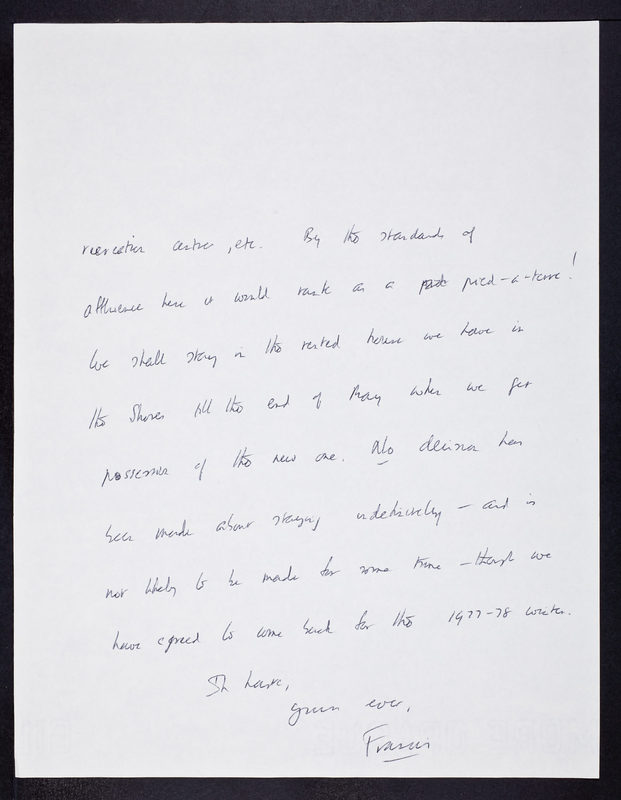 recreation centre, etc. By the standards of
affluence here it would rank as a pied-a-terre!
We shall stay in the rented house we have in
the Shores till the end of May when we get
possession of the new one. No decision has
been made about staying indefinitely – and is
not likely to be made for some time – though we
have agreed to come back for the 1977-78 winter.
In haste,
yours ever,
Francis